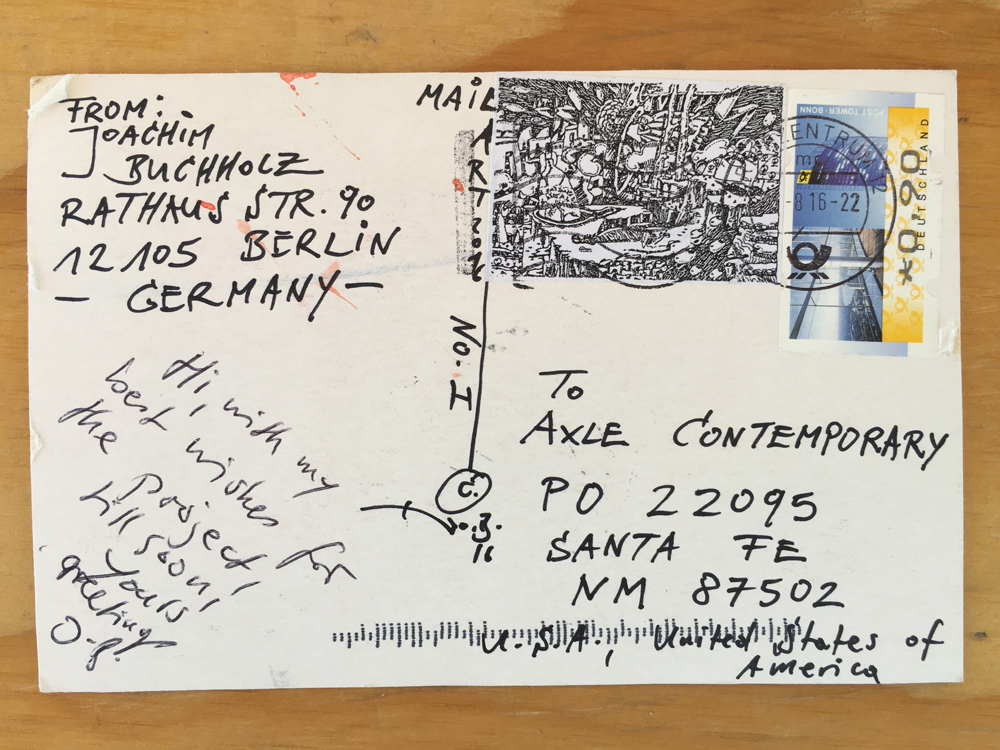 FROM:
JOACHIM
BUCHHOLZ
RATHAUS STR. 90
12105 BERLIN
— GERMANY —
Hi, with my
best wishes for
the Project,
till soon,
Yours
greetings
J.B.
MAIL
ART
No. I
C.
POST TOWER · BONN
ENTRUM
-8 16-22
*0,90
DEUTSCHLAND
To
AXLE CONTEMPORARY
PO 22095
SANTA FE
NM 87502
U.S.A., United States of
America